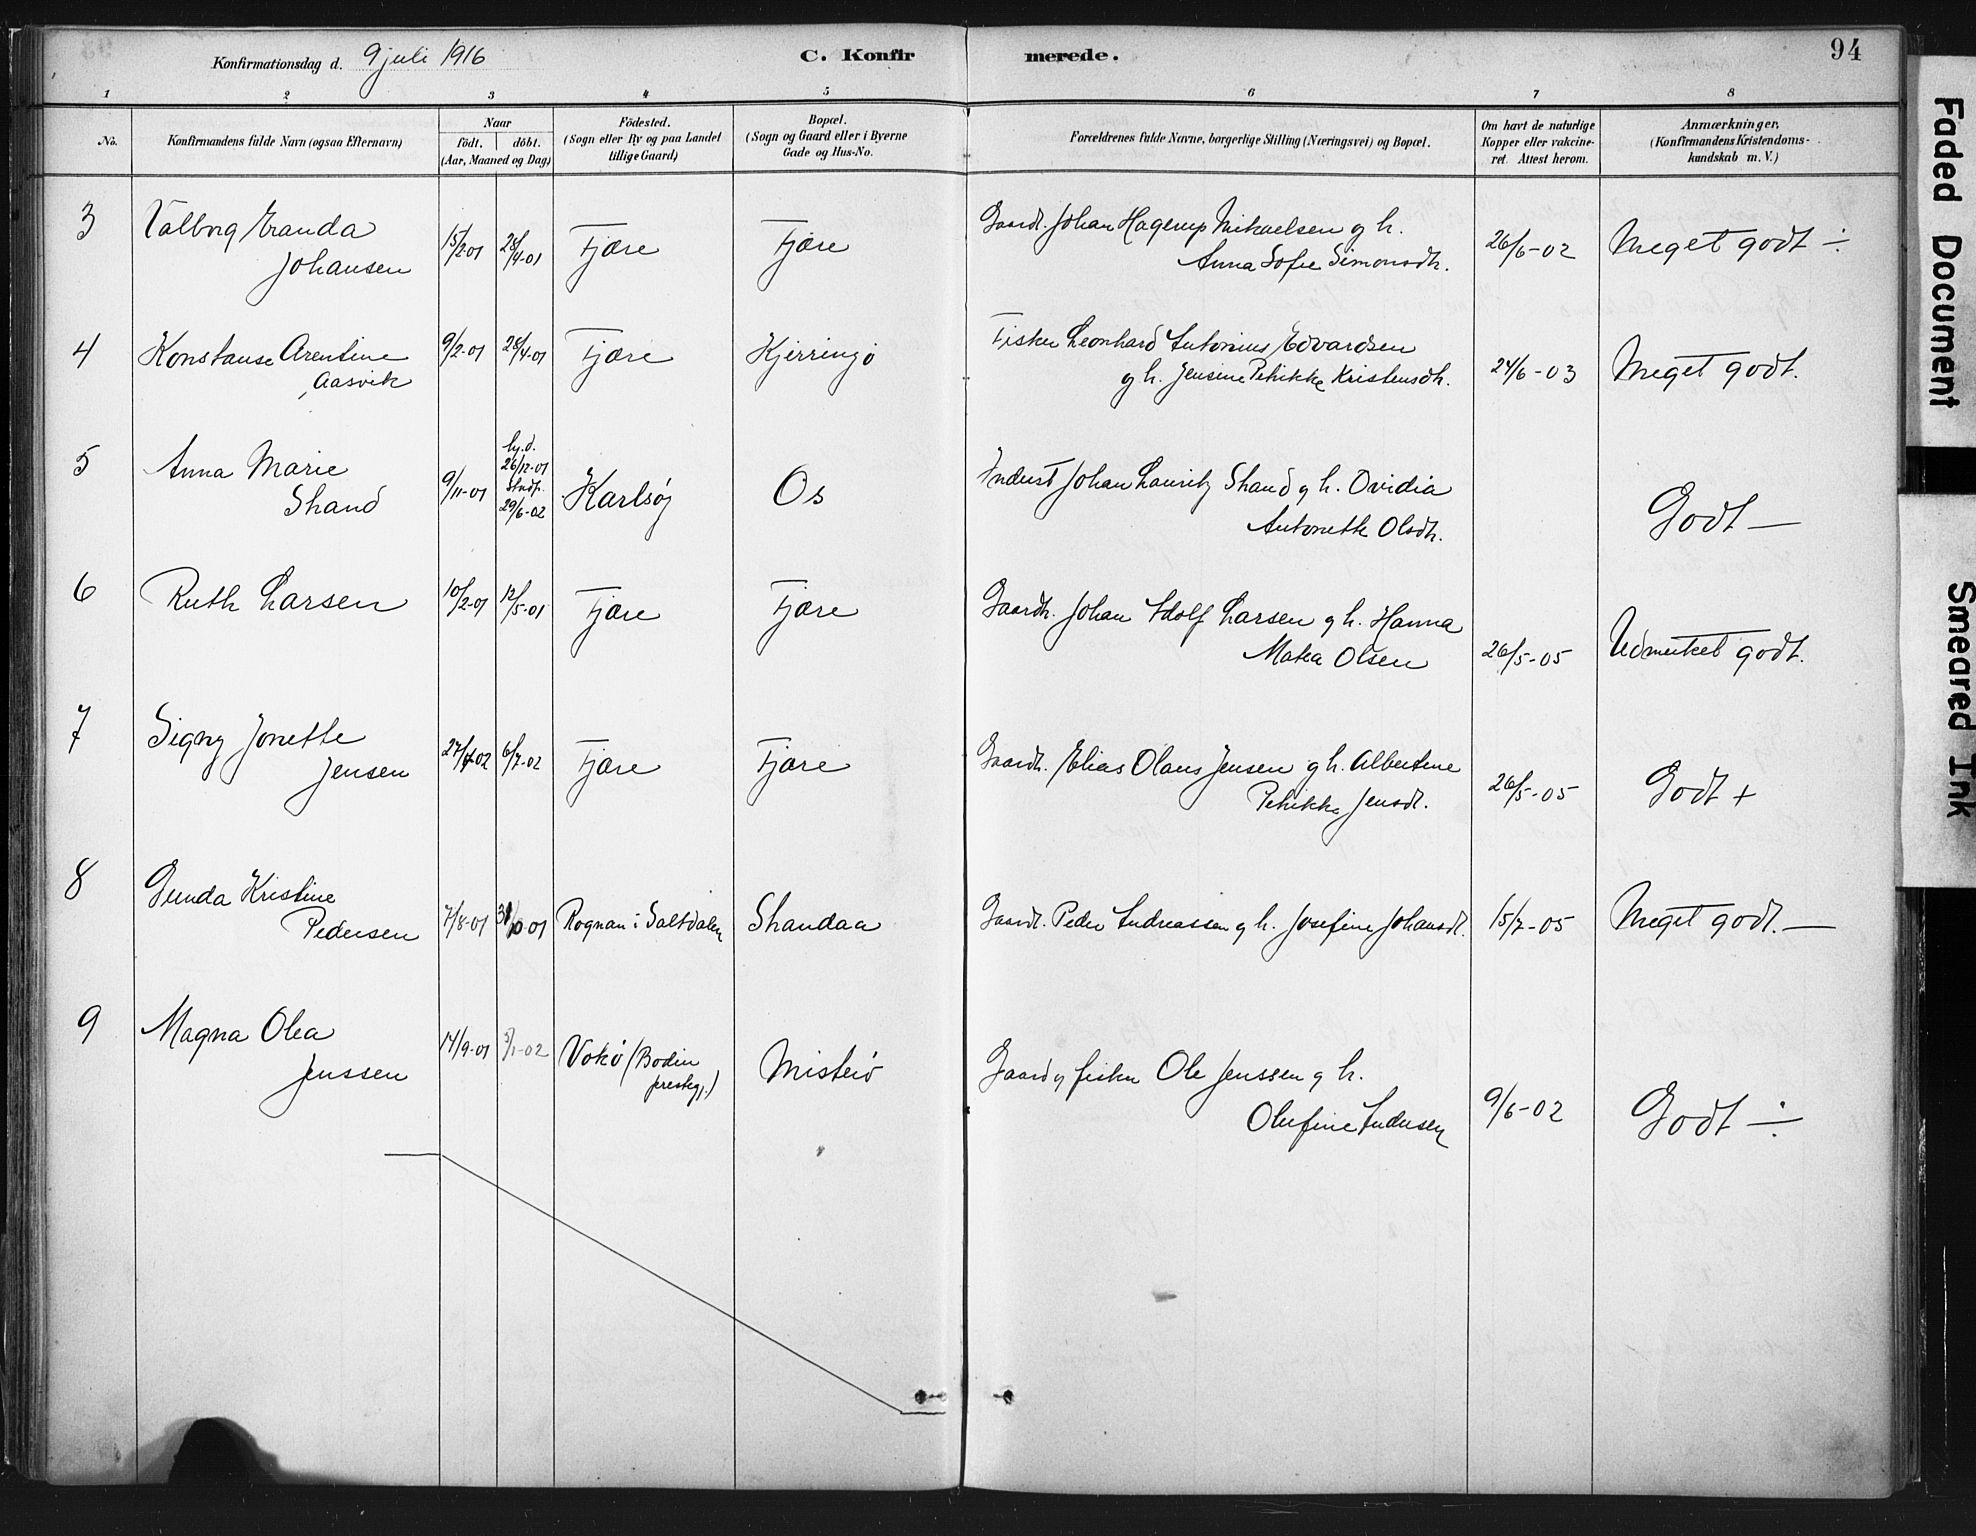 Konfirmationsdag d. 9 juli 1916
C. Konfirmerede.
94
1 2 3 4 5 6 7 8
No.
Konfirmandens fulde Navn (ogsaa Efternavn)
Naar
födt. döbt.
(Aar, Maaned og Dag)
Födested.
(Sogn eller By og paa Landet
tillige Gaard)
Bopæl.
(Sogn og Gaard eller i Byerne
Gade og Hus-No.
Forældrenes fulde Navne, borgerlige Stilling (Næringsvei) og Bopæl.
Om havt de naturlige
Kopper eller vakcine-
ret. Attest herom.
Anmærkninger.
(Konfirmandens Kristendoms-
kundskab m. V.)
3 Valborg Eranda 15/2-01 28/4-01 Fjære Fjære Gaardt. Johan Hagerup Mikaelsen og h. 26/6-02 Meget godt ÷
Johansen Anna Sofie Simonsdtr.
4 Konstanse Arentine 9/2-01 28/4-01 Fjære Kjerringø Fisker Leonhard Antonius Edvardsen 24/6-03 Meget godt.
Aasvik og h. Jensine Petrikke Kristensdtr.
5 Anna Marie 9/11-01 hj.d. 26/12-01 Stadf. 29/6-02 Karlsøy Os Inderst Johan Lauritz Strand og h. Ovidia Godt —
Strand Antonette Olsdtr.
6 Ruth Larsen 10/2-01 12/5-01 Fjære Fjære Gaardt. Johan Adolf Larsen og h. Hanna 26/5-05 Udmerket godt.
Matea Olsen
7 Signy Jonette 27/4-02 6/7-02 Fjære Fjære Gaardt. Elias Olaus Jensen og h. Albertine 26/5-05 Godt +
Jensen Petrikke Jensdt.
8 Gunda Kristine
Pedersen 7/8-01 /10-01 Rognan i Saltdalen Strandaa Gaardt. Peder Andreassen og h. Josefine Johansdt. 15/7-05 Meget godt. —
9 Magna Olea 14/9-01 /1-02 (Bodin Misterø Gaard og fisker Ole Jenssen og h. 9/6-02 Godt ÷
Jenssen prestegj.) Olufine Andersen
Faded Document
Smeared Ink